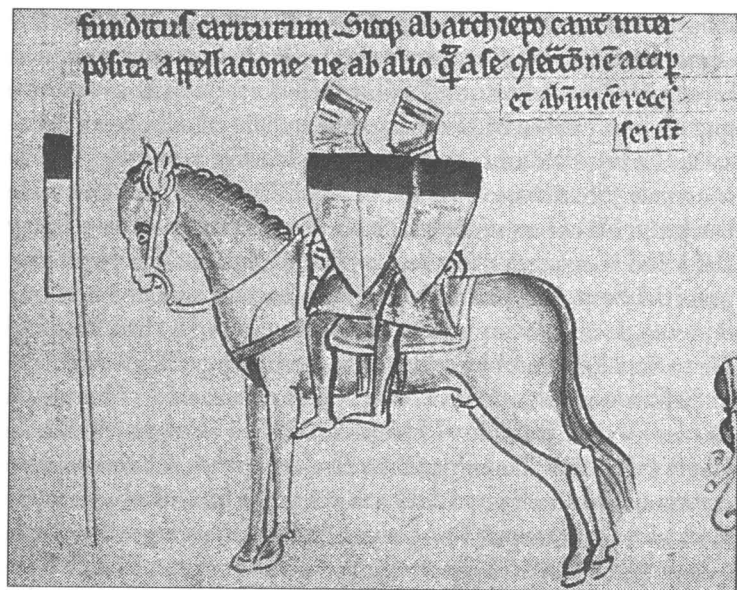 funditus cariturum. Sicq̃ ab archiep̃o cant̃ inter
posita appellacione ne ab alio q̃ a se ꝯsecc̃onẽ accip̃
et abĩuicẽ recesֿ
serũt